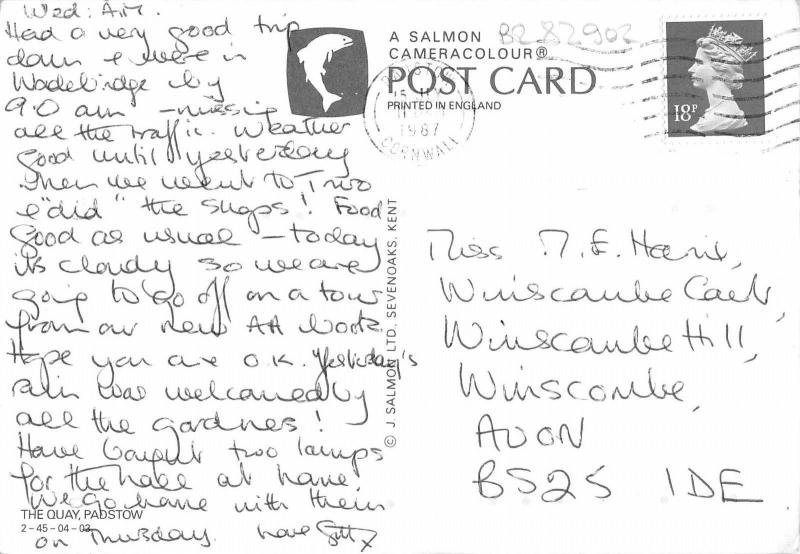 Wed: A.M.
Had a very good trip
down & were in
Wadebridge by
9.0 am - missing
all the traffic. Weather
good until yesterday
when we went to Truro
& "did" the shops! Food
good as usual - today
its cloudy so we are
going to go off on a tour
from our new AA book.
Hope you are O.K. Yesterday's
rain was welcomed by
all the gardners!
Have bought two lamps
for the at home!
We go home with them
on Thursday. Love
THE QUAY, PADSTOW
2-45-04-03
© J. SALMON LTD. SEVENOAKS. KENT
A SALMON
CAMERACOLOUR®
POST CARD
PRINTED IN ENGLAND
BR82902
1987
CORNWALL
18P
Miss M. E. Harris,
Winscombe Court,
Winscombe Hill,
Winscombe,
AVON
BS25 1DE